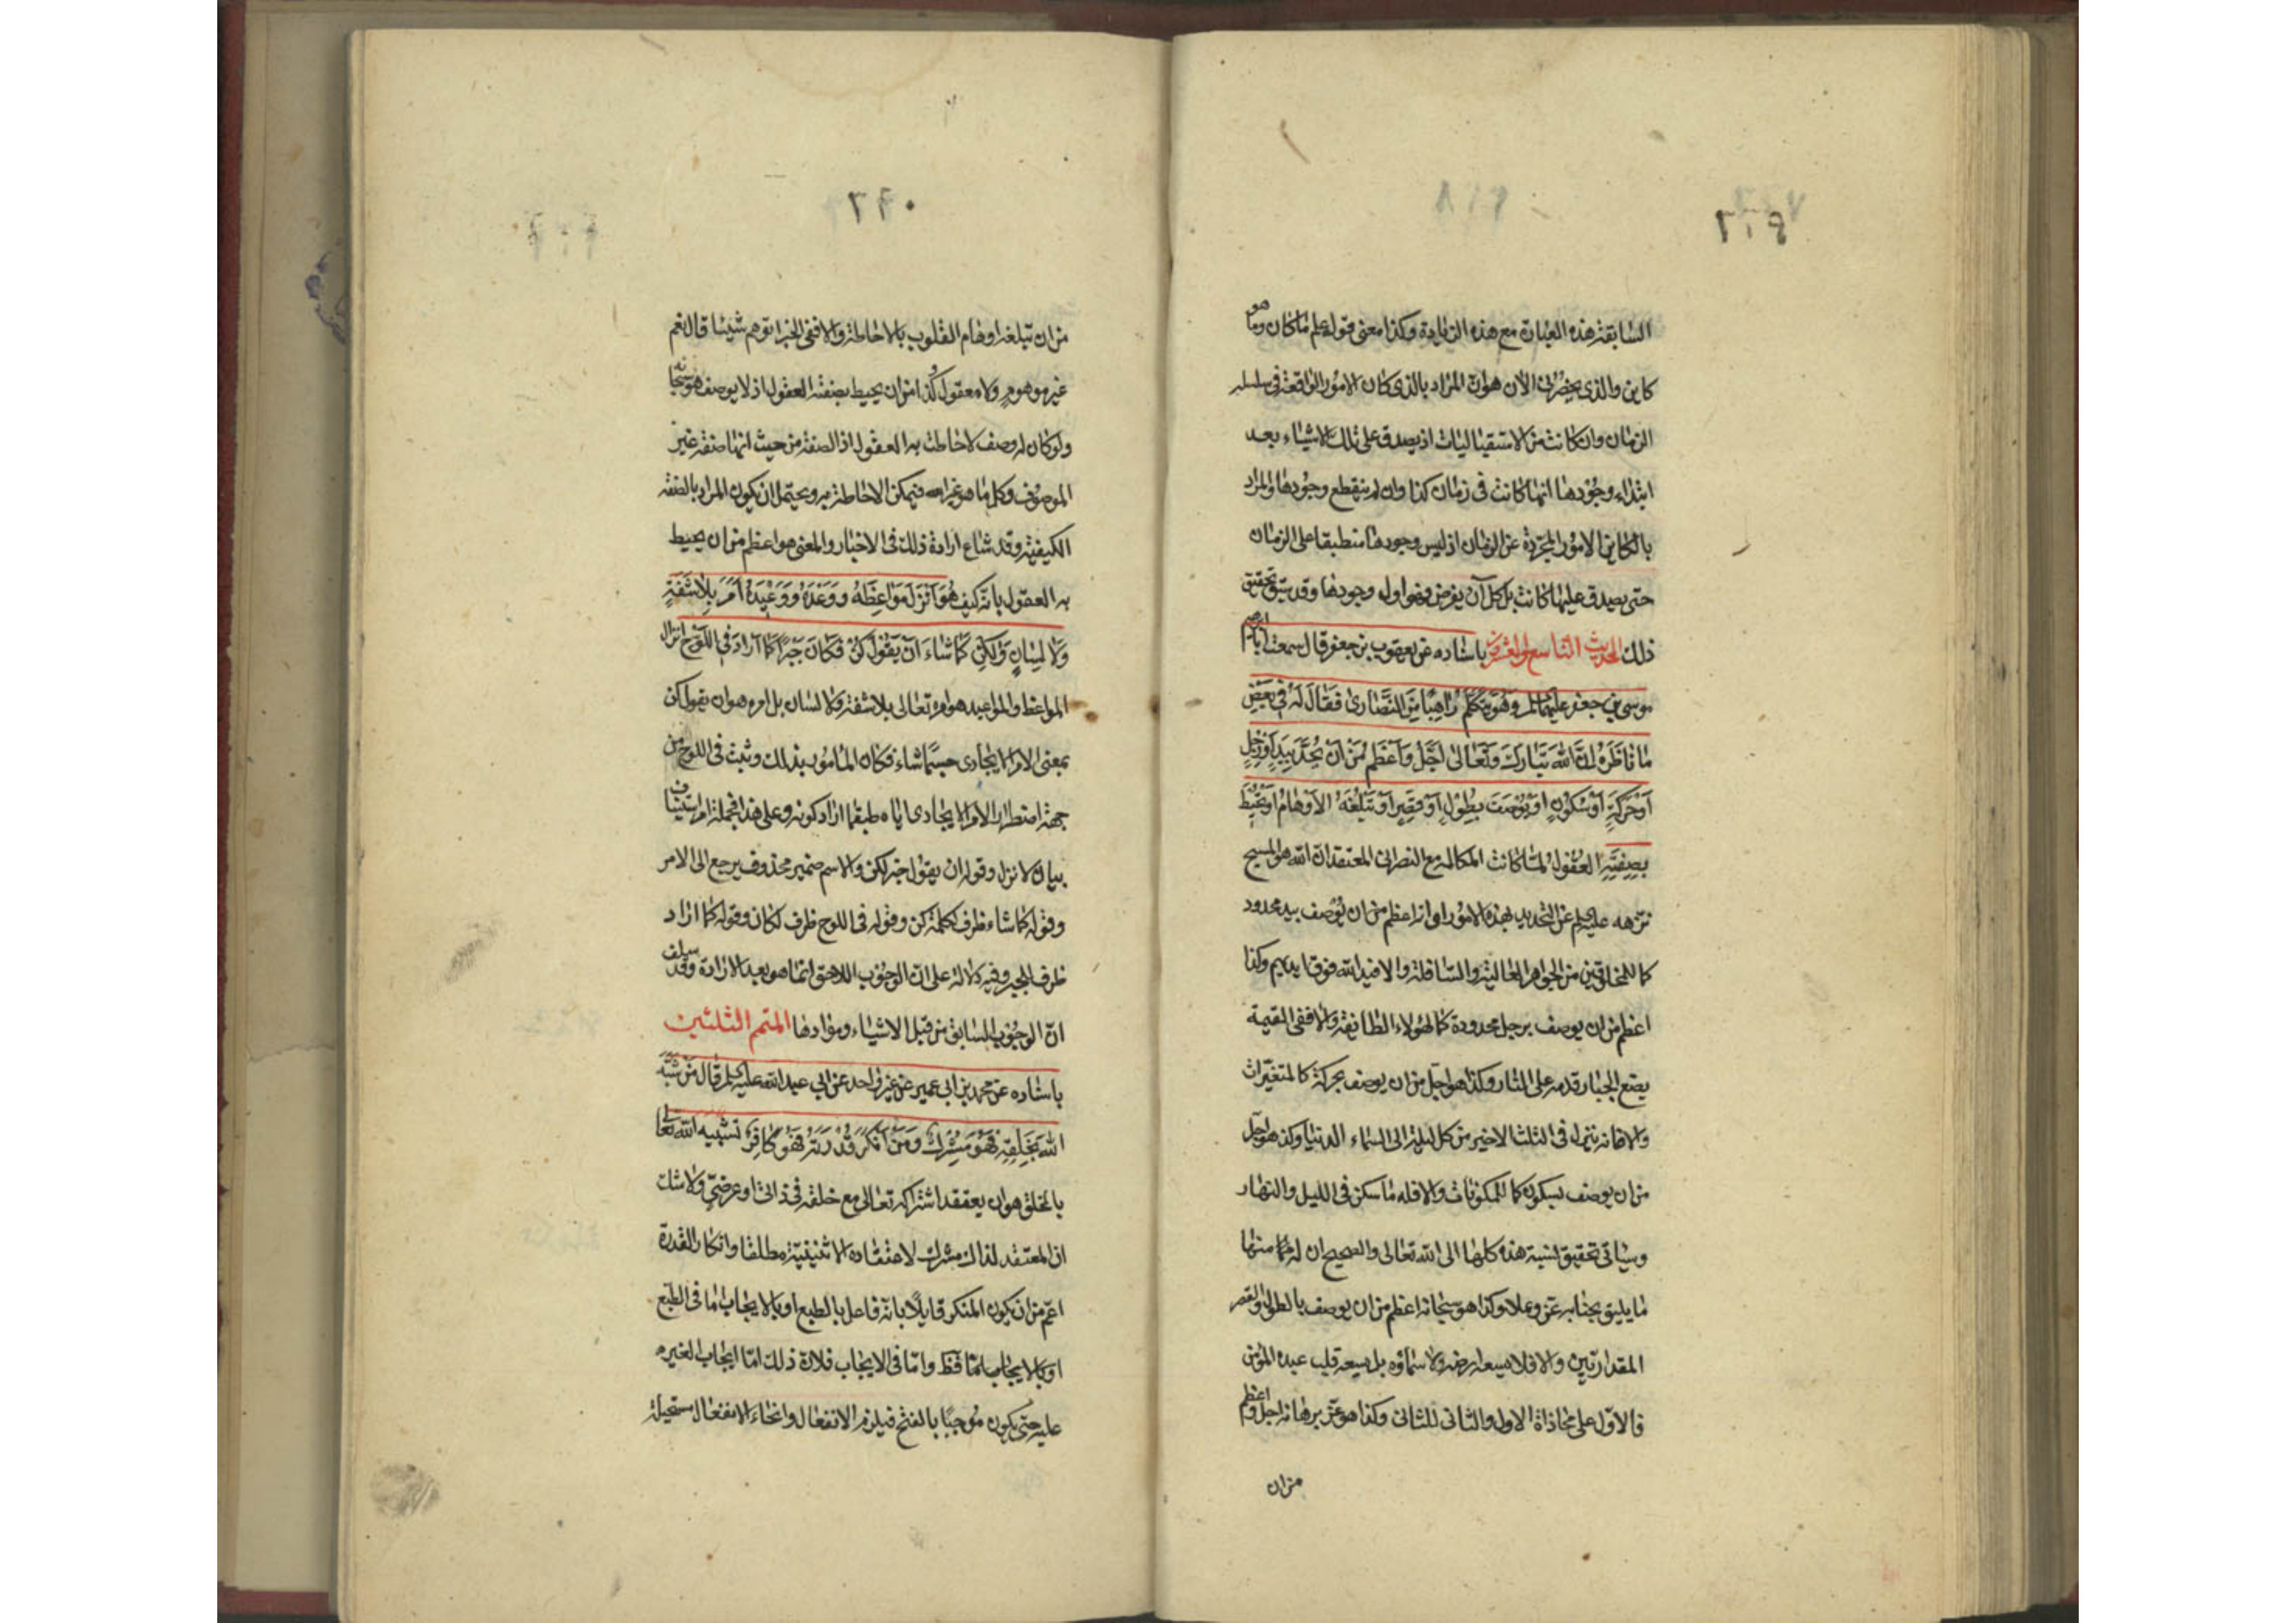 السابقة هذه العبارة مع هذه الزيادة وكذا معنى قوله علم ما كان وما هو
كاين والذي يحضرني الآن هو ان المراد بالذي كان الامور الواقعة في سلسلة
الزمان وان كانت من الاستقباليات اذ يصدق على تلك الاشياء بعد
ابتداء وجودها انها كانت في زمان كذا وان لم ينقطع وجودها والمراد
بالكاين الامور المجردة عن الزمان اذ ليس وجودها منطبقا على الزمان
حتى يصدق عليها كانت بل كل آن يفرض فهو اول وجودها وقد سبق تحقيق
ذلك الحديث التاسع والعشرون باسناده عن يعقوب بن جعفر قال سمعت ابا ابرهيم
موسى بن جعفر عليهما السلم وَهُوَ يُكَلِّمُ رٰاهِبًا مِنَ النَّصٰارىٰ فَقٰالَ لَهُ فِي بَعْضِ
مٰا نٰاظَرَهُ اِنَّ اللهَ تَبٰارَكَ وَتَعٰالىٰ اَجَلُّ وَاَعْظَمُ مِنْ اَنْ يُحَدَّ بِيَدٍ اَوْ رِجْلٍ
اَوْ حَرَكَةٍ اَوْ سُكُونٍ اَوْ يُوصَفَ بِطُولٍ اَوْ قِصَرٍ اَوْ تَبْلُغَهُ الاَوْهٰامُ اَوْ تُحِيطَ
بِصِفَتِهِ العُقُولُ لمّا كانت المكالمة مع النصراني المعتقد ان الله هو المسيح
نزهه عليه السلم عن التحديد بهذه الامور اي انه اعظم من ان يوصف بيد محدود
كالمخلوقين من الجواهر العالية والسافلة والا فيد الله فوق ايديهم وكذا
اعظم من ان يوصف برجل محدودة كالهؤلاء الطائفة والا ففي القيمة
يضع الجبار قدمه على النار وكذا هو اجل من ان يوصف بحركة كالمتغيرات
والا فانه ينزل في الثلث الاخير من كل ليلة الى السماء الدنيا وكذا هو اجل
من ان يوصف بسكون كالمكونات والا فله ما سكن في الليل والنهار
وسياتي تحقيق نسبة هذه كلها الى الله تعالى والصحيح ان له منها
ما يليق بجنابه عز وعلا وكذا هو سبحانه اعظم من ان يوصف بالطول والقصر
المقداريين والا فلا يسعه ارضه ولا سماؤه بل يسعه قلب عبده المؤمن
فالاول على محاذاة الاول والثاني للثاني وكذا هو عز برهانه اجل واعظم
من ان
من ان تبلغه اوهام القلوب بالاحاطة والا ففي الخبر اتوهم شيئا قال نعم
غير موهوم ولا معقول كذا من ان يحيط بصفته العقول اذ لا يوصف هو سبحانه
ولو كان له وصف لاحاطت به العقول اذ الصفة من حيث انها صفة غير
الموصوف وكل ما هو غير الله فيمكن الاحاطة به ويحتمل ان يكون المراد بالصفة
الكيفية وقد شاع ارادة ذلك في الاخبار والمعنى هو اعظم من ان يحيط
به العقول بانه كيف هُوَ اَنْزَلَ مَوٰاعِظَهُ وَوَعْدَهُ وَوَعِيدَهُ اَمَرَ بِلاٰ شَفَةٍ
وَلاٰ لِسٰانٍ وَلٰكِنْ كَمٰا شٰاءَ اَنْ يَقُولَ كُنْ فَكٰانَ خَبَرًا كَمٰا اَرٰادَ فِي اللَّوْحِ انزال
المواعظ والمواعيد هو امره تعالى بلا شفة ولا لسان بل امره هو ان يقول كن
بمعنى الامر الايجادي حسبما شاء فكان المامور بذلك وثبت في اللوح من
جهة الامر الايجادي اياه طبقما اراد كونه وعلى هذا فجملة امر استيناف
بيان لانزل وقوله ان يقول خبر لكن والاسم ضمير محذوف يرجع الى الامر
وقوله كما شاء ظرف لكلمة كن وقوله في اللوح ظرف لكان وقوله كما اراد
ظرف للخبر وفيه دلالة على ان الوجوب اللاحق انما هو بعد الارادة وقد سلف
ان الوجوب السابق من قبل الاشياء وموادها المتمم الثلثين
باسناده عن محمد بن ابي عمير عن غير واحد عن ابي عبد الله عليه السلم قال مَنْ شَبَّهَ
اللهَ بِخَلْقِهِ فَهُوَ مُشْرِكٌ وَمَنْ اَنْكَرَ قُدْرَتَهُ فَهُوَ كٰافِرٌ تشبيه الله تعالى
بالخلق هو ان يعتقد اشتراكه تعالى مع خلقه في ذاتي او عرضي ولا شك
ان المعتقد لذلك مشرك لاعتقاده الاثنينية مطلقا وانكار القدرة
اعم من ان يكون المنكر قايلا بانه فاعل بالطبع او بالايجاب اما في الطبع
او بالايجاب واما في الايجاب فلان ذلك اما ايجاب لغيره
عليه حتى يكون مُوجَبًا بالفتح فيلزم الانفعال وانحاء الانفعال مستحيلة